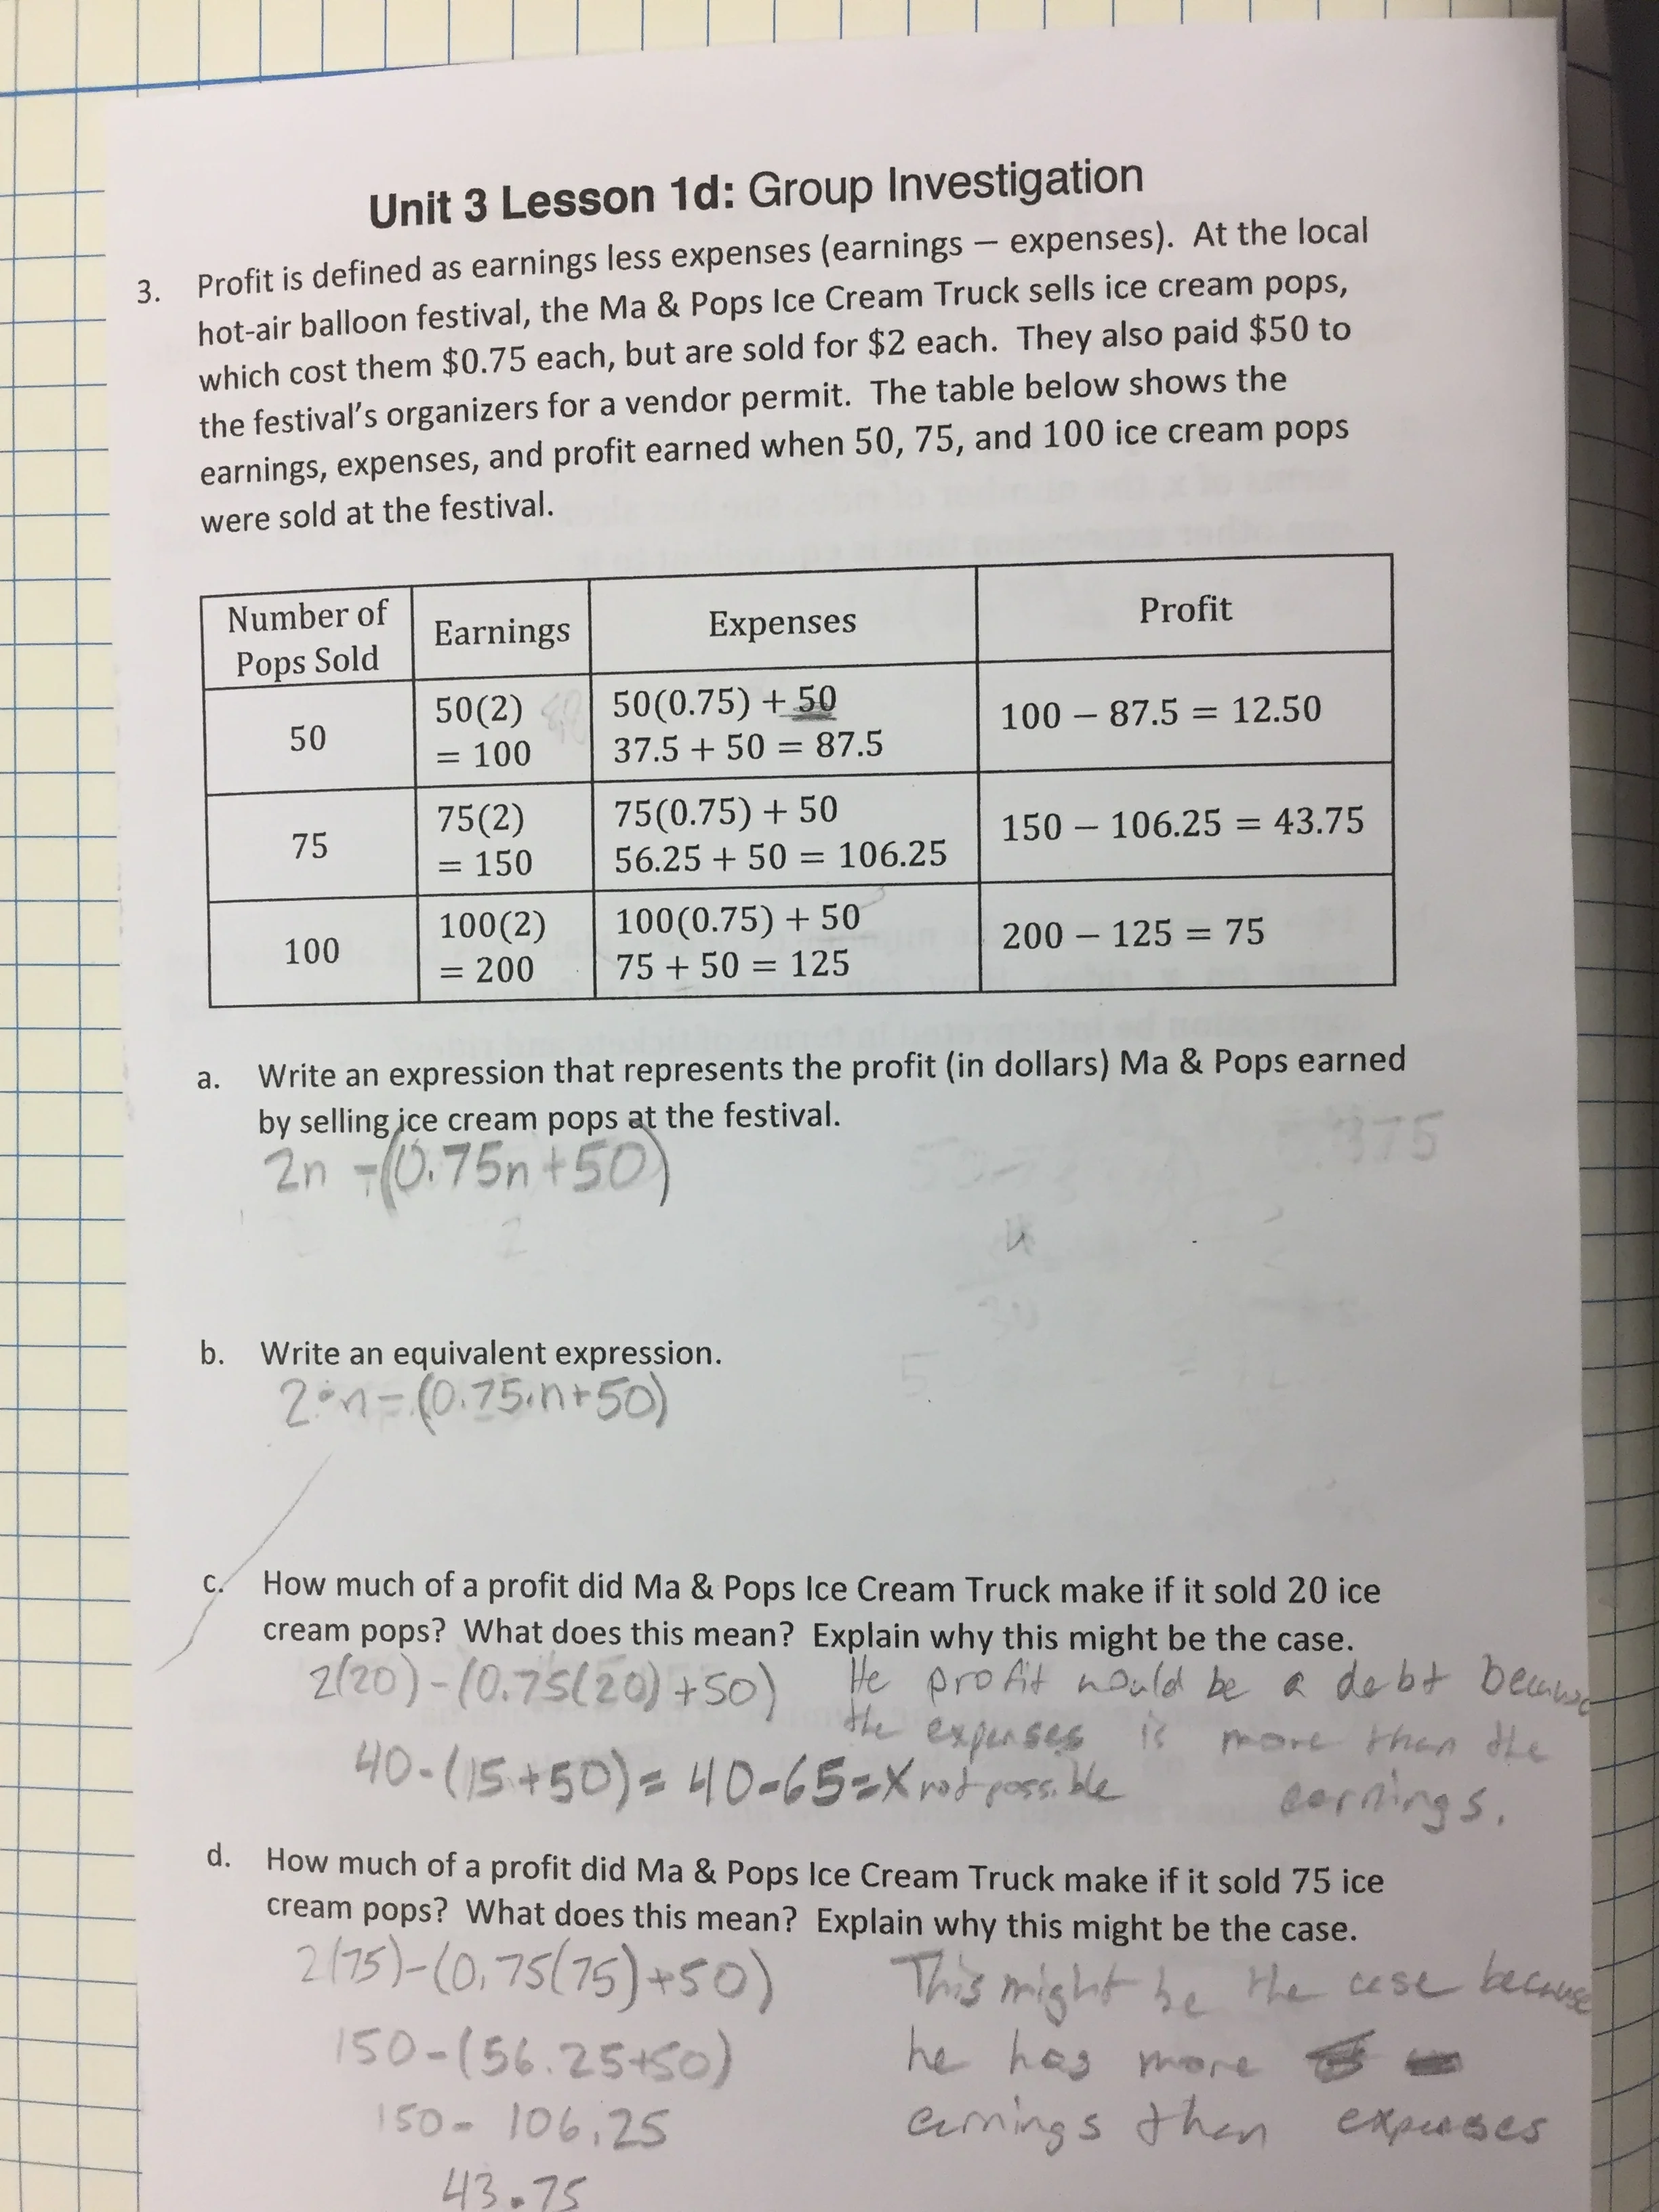 Unit 3 Lesson 1d: Group Investigation
3. Profit is defined as earnings less expenses (earnings – expenses). At the local
hot-air balloon festival, the Ma & Pops Ice Cream Truck sells ice cream pops,
which cost them $0.75 each, but are sold for $2 each. They also paid $50 to
the festival's organizers for a vendor permit. The table below shows the
earnings, expenses, and profit earned when 50, 75, and 100 ice cream pops
were sold at the festival.
Number of
Pops Sold
Earnings
Expenses
Profit
50
50(2)
= 100
50(0.75) + 50
37.5 + 50 = 87.5
100 − 87.5 = 12.50
75
75(2)
= 150
75(0.75) + 50
56.25 + 50 = 106.25
150 − 106.25 = 43.75
100
100(2)
= 200
100(0.75) + 50
75 + 50 = 125
200 − 125 = 75
a. Write an expression that represents the profit (in dollars) Ma & Pops earned
by selling ice cream pops at the festival.
2n -(0.75n+50)
b. Write an equivalent expression.
2·n=(0.75·n+50)
c. How much of a profit did Ma & Pops Ice Cream Truck make if it sold 20 ice
cream pops? What does this mean? Explain why this might be the case.
2(20)-(0.75(20)+50)
40-(15+50)= 40-65=X not possible
He profit would be a debt because
the expenses is more than the
earnings.
d. How much of a profit did Ma & Pops Ice Cream Truck make if it sold 75 ice
cream pops? What does this mean? Explain why this might be the case.
2(75)-(0.75(75)+50)
150-(56.25+50)
150- 106.25
43.75
This might be the case because
he has more
earnings than expenses